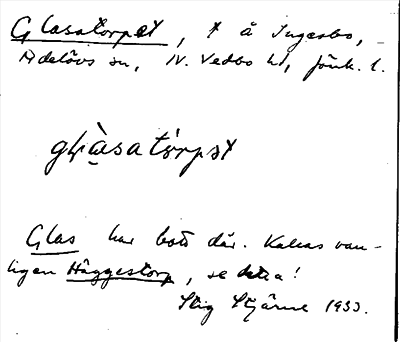 Glasatorpet, t å Ingarbo,
Adelövs sn, N. Vedbo hd, Jönk. l.
Glas har bott där. Kallas van-
ligen Häggestorp, se detta!
Stig Stjärne 1933.